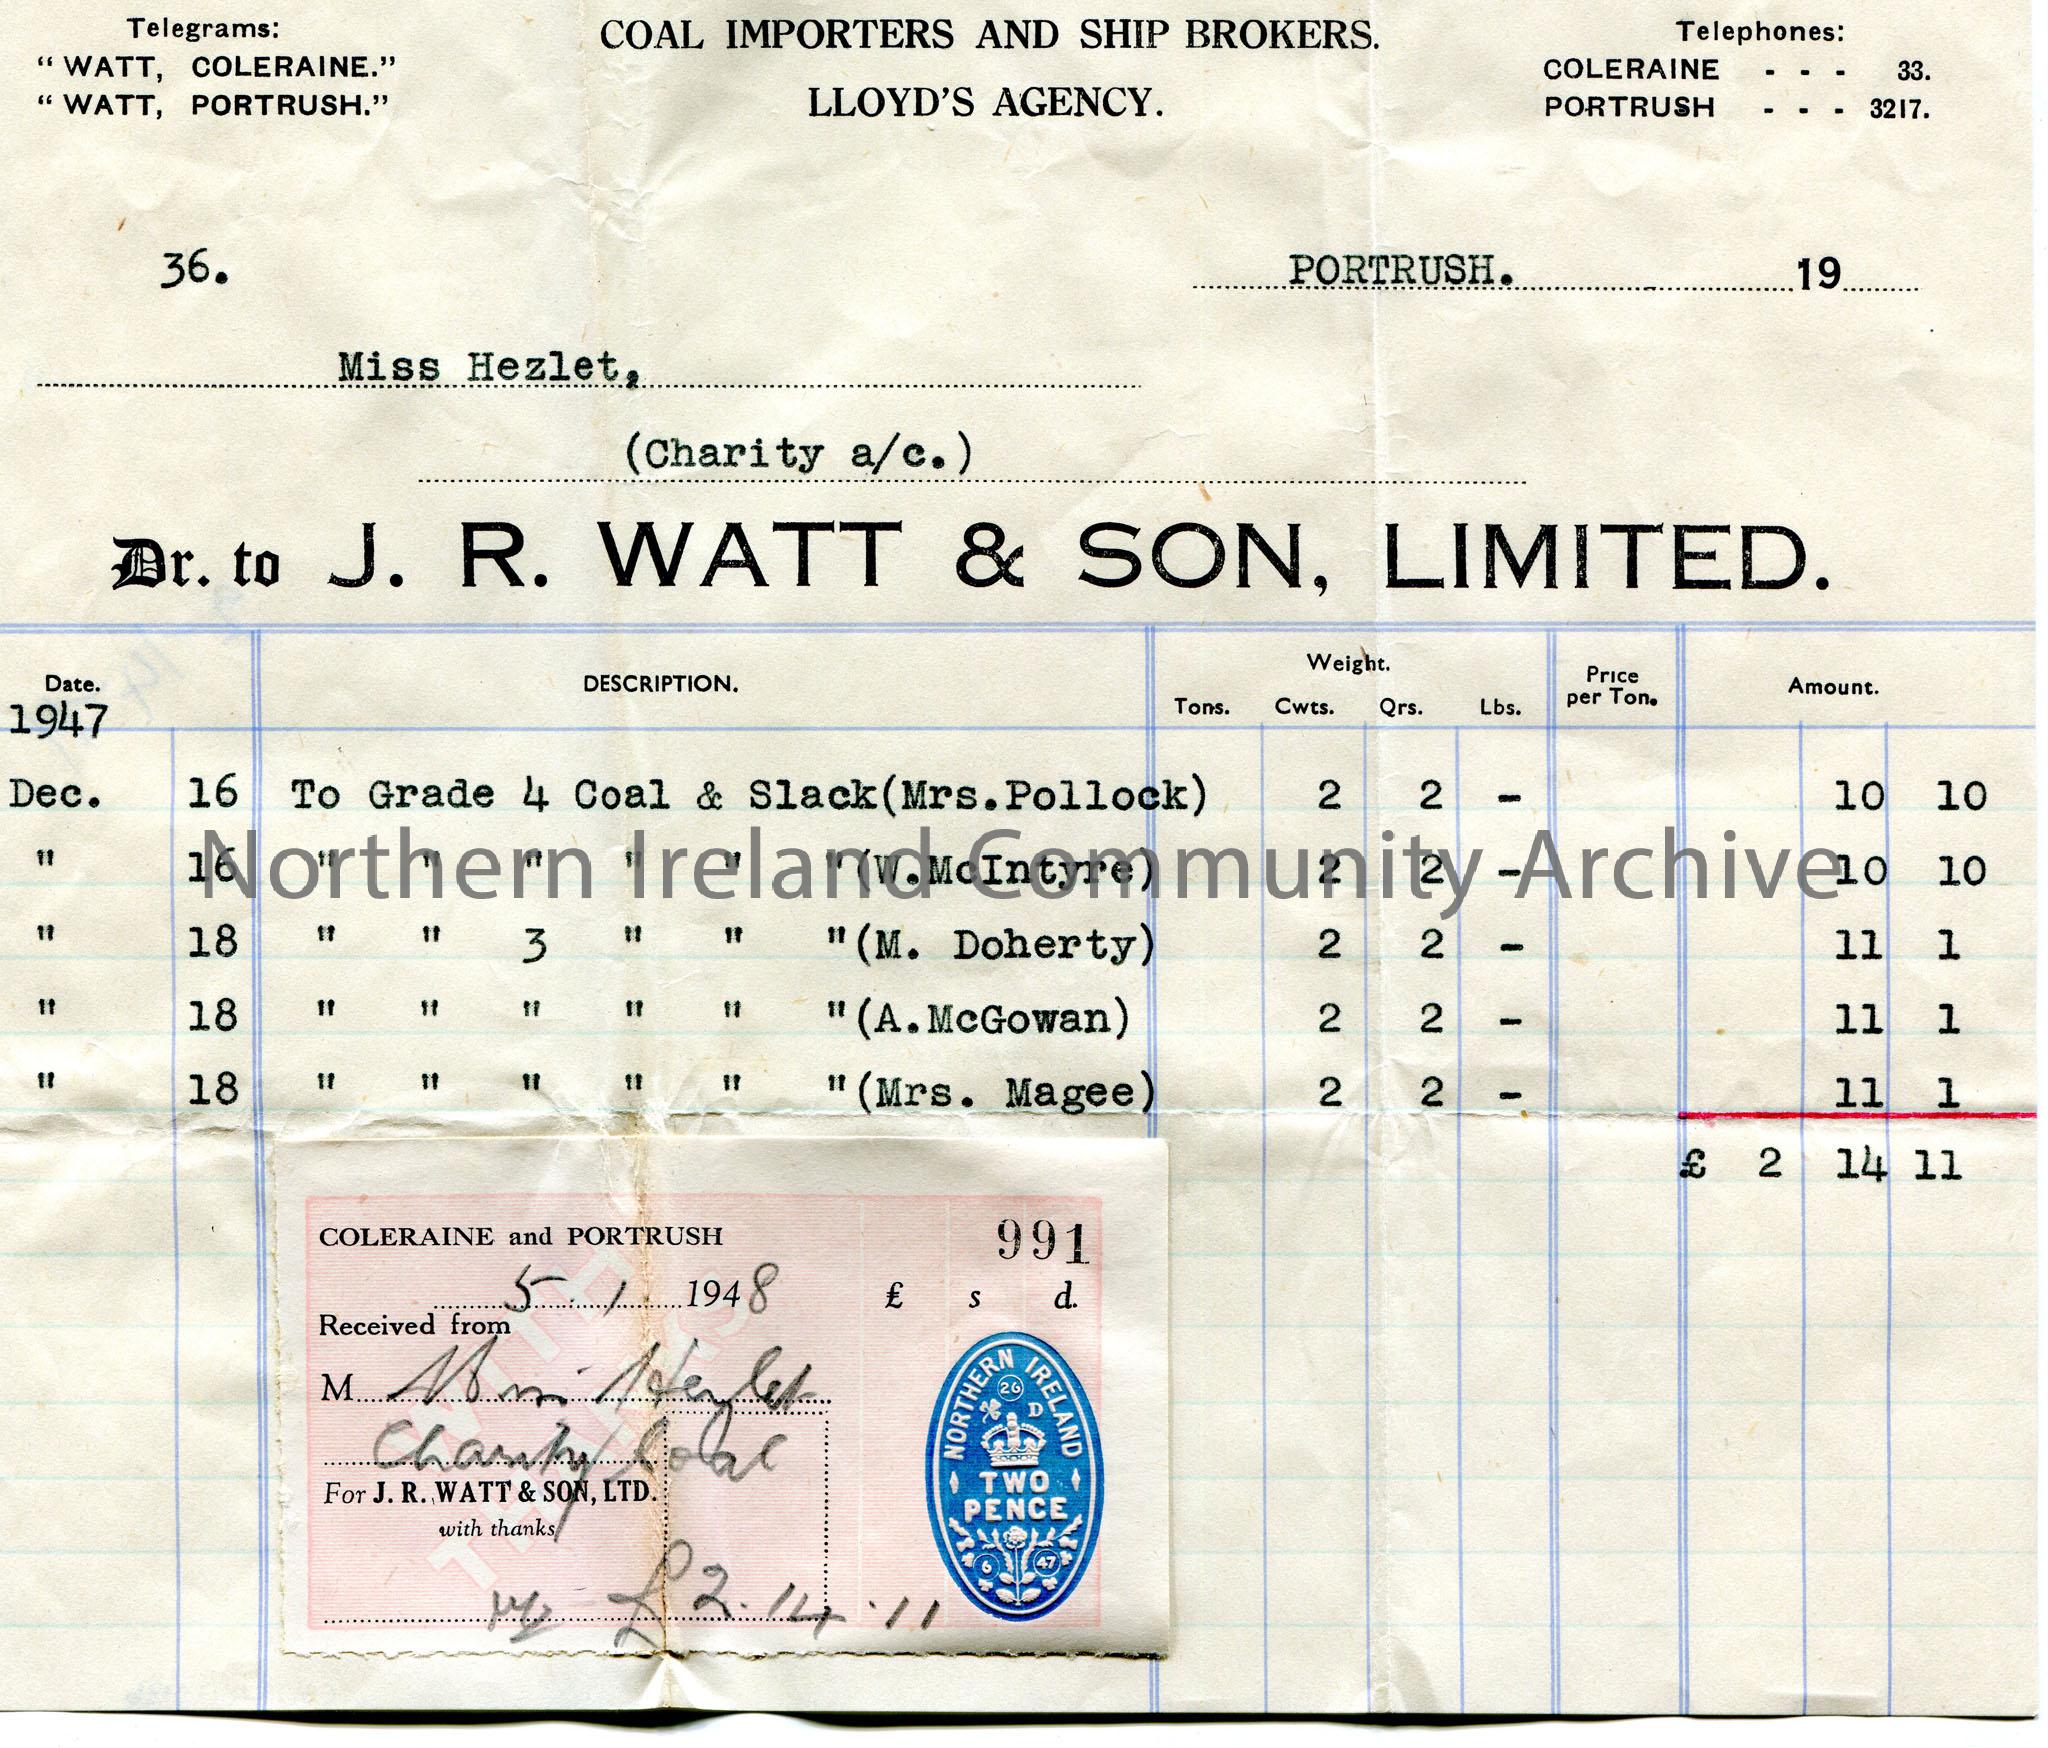 Telegrams:
"WATT, COLERAINE."
"WATT, PORTRUSH."
COAL IMPORTERS AND SHIP BROKERS.
LLOYD'S AGENCY.
Telephones:
COLERAINE - - - 33.
PORTRUSH - - - 3217.
36.
PORTRUSH. 19
Miss Hezlet,
(Charity a/c.)
Dr. to J. R. WATT & SON, LIMITED.
Date. DESCRIPTION. Weight. Price per Ton. Amount.
Tons. Cwts. Qrs. Lbs.
1947
Dec. 16 To Grade 4 Coal & Slack(Mrs.Pollock) 2 2 - 10 10
" 16 " " " " " "(W.McIntyre) 2 2 - 10 10
Northern Ireland Community Archive
" 18 " " 3 " " "(M. Doherty) 2 2 - 11 1
" 18 " " " " " "(A.McGowan) 2 2 - 11 1
" 18 " " " " " "(Mrs. Magee) 2 2 - 11 1
£ 2 14 11
COLERAINE and PORTRUSH 991
5 . 1 1948 £ s d.
Received from
M Miss Hezlet
Charity Coal
For J. R. WATT & SON, LTD.
with thanks
£2.14.11
WITH THANKS
NORTHERN IRELAND
26
D
TWO
PENCE
6 47